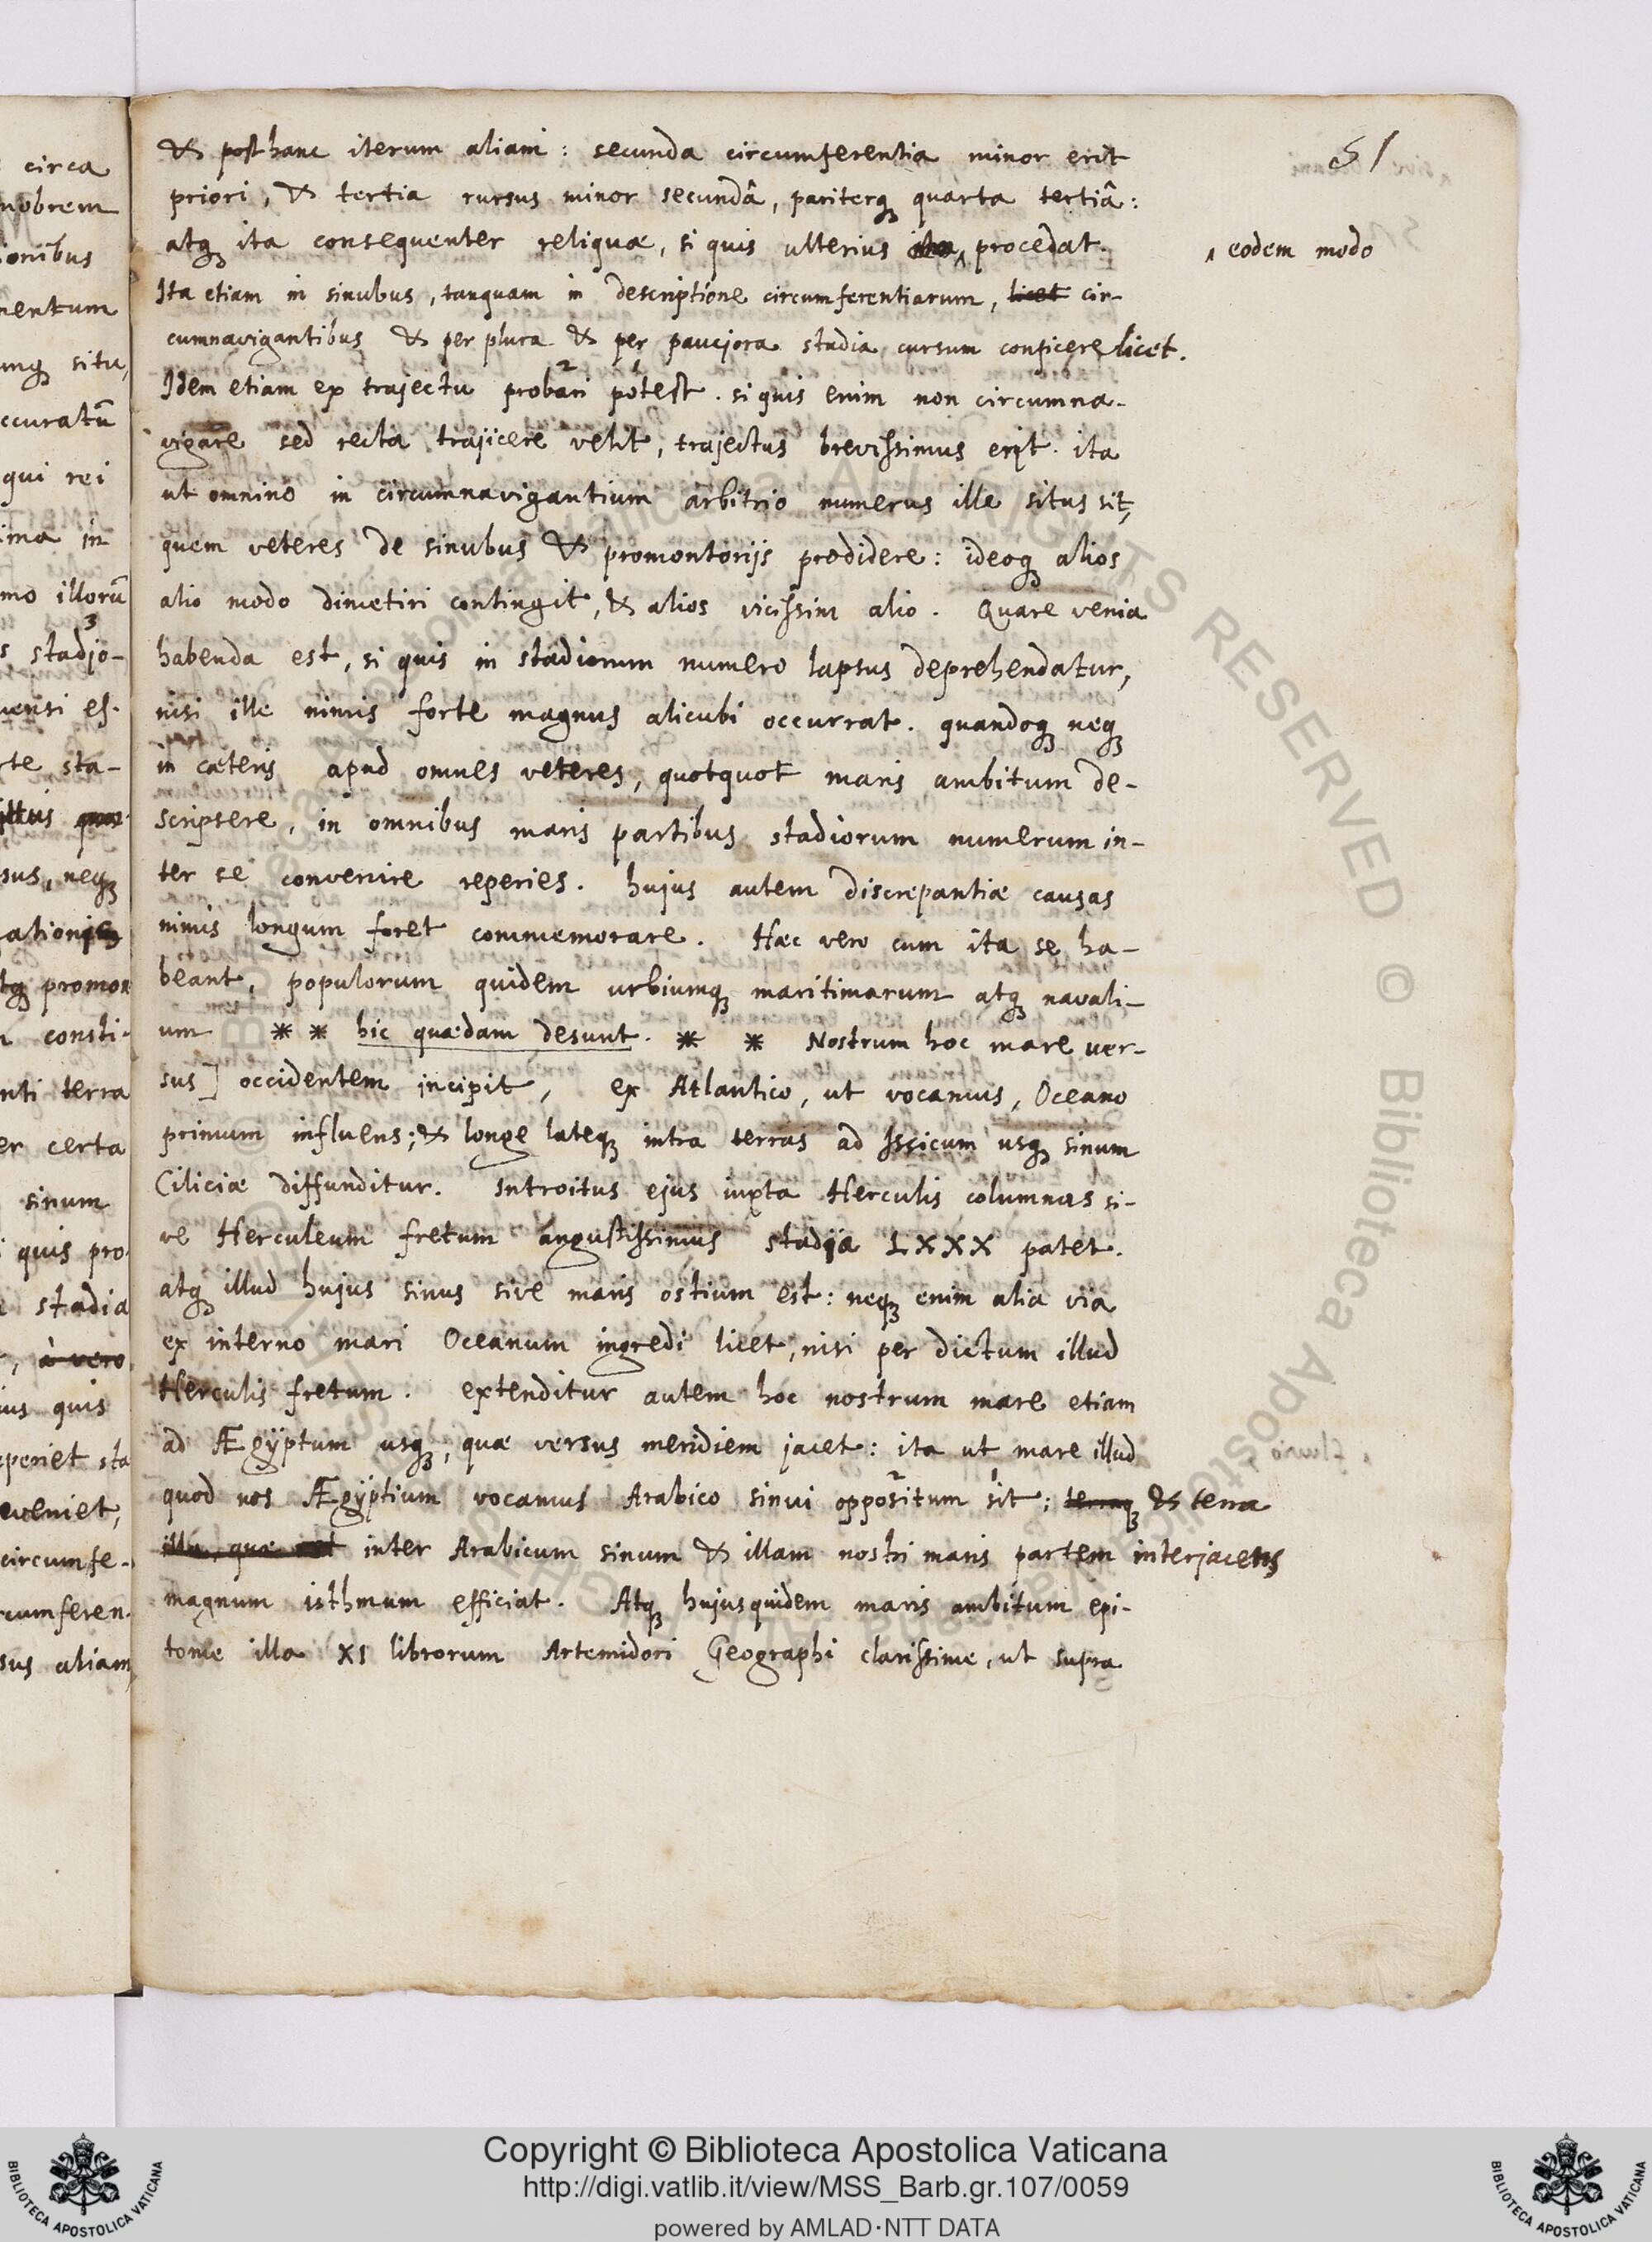 51
& post hanc iterum aliam: secunda circumferentia minor erit
priori, & tertia rursus minor secundâ, pariterq quarta tertiâ:
atq ita consequenter reliquæ, si quis ulterius ‸ procedat.
‸ eodem modo
Ita etiam in sinubus, tanquam in descriptione circumferentiarum, licet cir-
cumnavigantibus & per plura & per pauciora stadia cursum conficere licet.
Idem etiam ex trajectu probari potest. si quis enim non circumna-
vigare sed recta trajicere velit, trajectus brevissimus erit. ita
ut omnino in circumnavigantium arbitrio numerus ille situs sit,
quem veteres de sinubus & promontorijs prodidere: ideoq alios
alio modo dimetiri contingit, & alios vicissim alio. Quare venia
habenda est, si quis in stadiorum numero lapsus deprehendatur,
nisi ille nimis forte magnus alicubi occurrat. quandoq neq
in cæteris apud omnes veteres, quotquot maris ambitum de-
scripsere, in omnibus maris partibus stadiorum numerum in-
ter se convenire reperies. hujus autem discrepantiæ causas
nimis longum foret commemorare. Hæc vero cum ita se ha-
beant, populorum quidem urbiumq maritimarum atq navali-
um * * hic quædam desunt. * * Nostrum hoc mare ver-
sus] occidentem incipit, ex Atlantico, ut vocamus, Oceano
primum influens; & longe lateq intra terras ad Issicum usq sinum
Ciliciæ diffunditur. Introitus ejus iuxta Herculis columnas si-
ve Herculeum fretum angustissimus stadia LXXX patet.
atq illud hujus sinus sive maris ostium est: neq enim alia via
ex interno mari Oceanum ingredi licet, nisi per dictum illud
Herculis fretum. extenditur autem hoc nostrum mare etiam
ad Ægÿptum usq, quæ versus meridiem jacet: ita ut mare illud
quod nos Ægÿptium vocamus Arabico sinui oppositum sit; terraq & terra
illa, quæ inter Arabicum sinum & illam nostri maris partem interjacens
magnum isthmum efficiat. Atq hujus quidem maris ambitum epi-
tome illa XI librorum Artemidori Geographi clarissime, ut supra
circa
onibus
mentum
umq situ,
ccuratū
qui rei
ima in
mo illorū
s stadjo-
versi es-
rte sta-
sus, neq
tq promon
consti-
nti terra
er certa
sinum
quis pro
stadia
, à vero
ius quis
periet sta
eveniet,
circumfe-
rcumferen-
sus aliam,
Copyright © Biblioteca Apostolica Vaticana
http://digi.vatlib.it/view/MSS_Barb.gr.107/0059
powered by AMLAD·NTT DATA
BIBLIOTECA APOSTOLICA VATICANA
BIBLIOTECA APOSTOLICA VATICANA